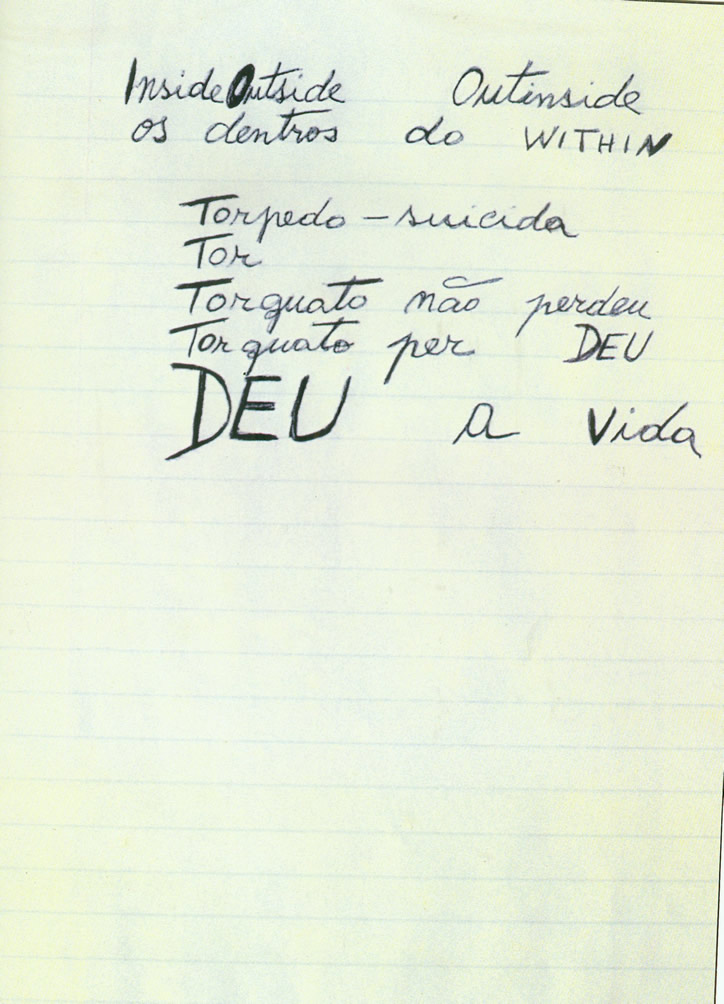 InsideOutside Outinside
os dentros do WITHIN
Torpedo - suicida
Tor
Torquato não perdeu
Torquato per DEU
DEU a Vida